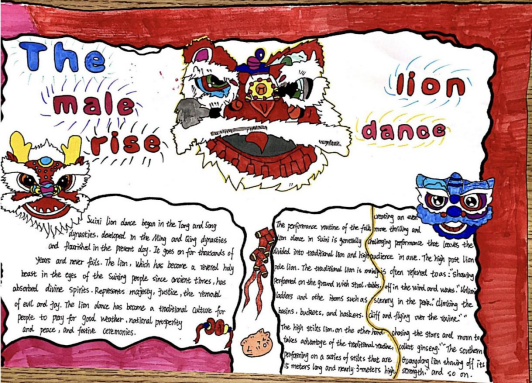 The
male
rise
lion
dance
Suixi lion dance began in the Tang and Song
dynasties, developed in the Ming and Qing dynasties
and flourished in the present day. It goes on for thousands of
years and never fails. The lion, which has become a revered holy
beast in the eyes of the suixing people since ancient times, has
absorbed divine spirits. Represents majesty, justice, the removal
of evil and joy. The lion dance has become a traditional culture for
people to pray for good weather, national prosperity
and peace, and festive ceremonies.
The performance routine of the folk
lion dance in Suixi is generally
divided into traditional lion and high
pole lion. The traditional lion is mainly
performed on the ground with stool
ladders and other items such as
basins, buckets, and
The high stilts lion, on the other hand,
takes advantage of the traditional routine,
performing on a series of stilts that are
15 meters long and nearly 3 meters high,
creating an even
more thrilling and
challenging performance that leaves the
audience in awe. The high post lion
is often referred to as: "showing
off in the wind and waves",
scenery in the park", "climbing the
cliff and flying over the ravine",
chasing the stars and moon to
ginseng". The southern
lion showing off its
strength," and so on.